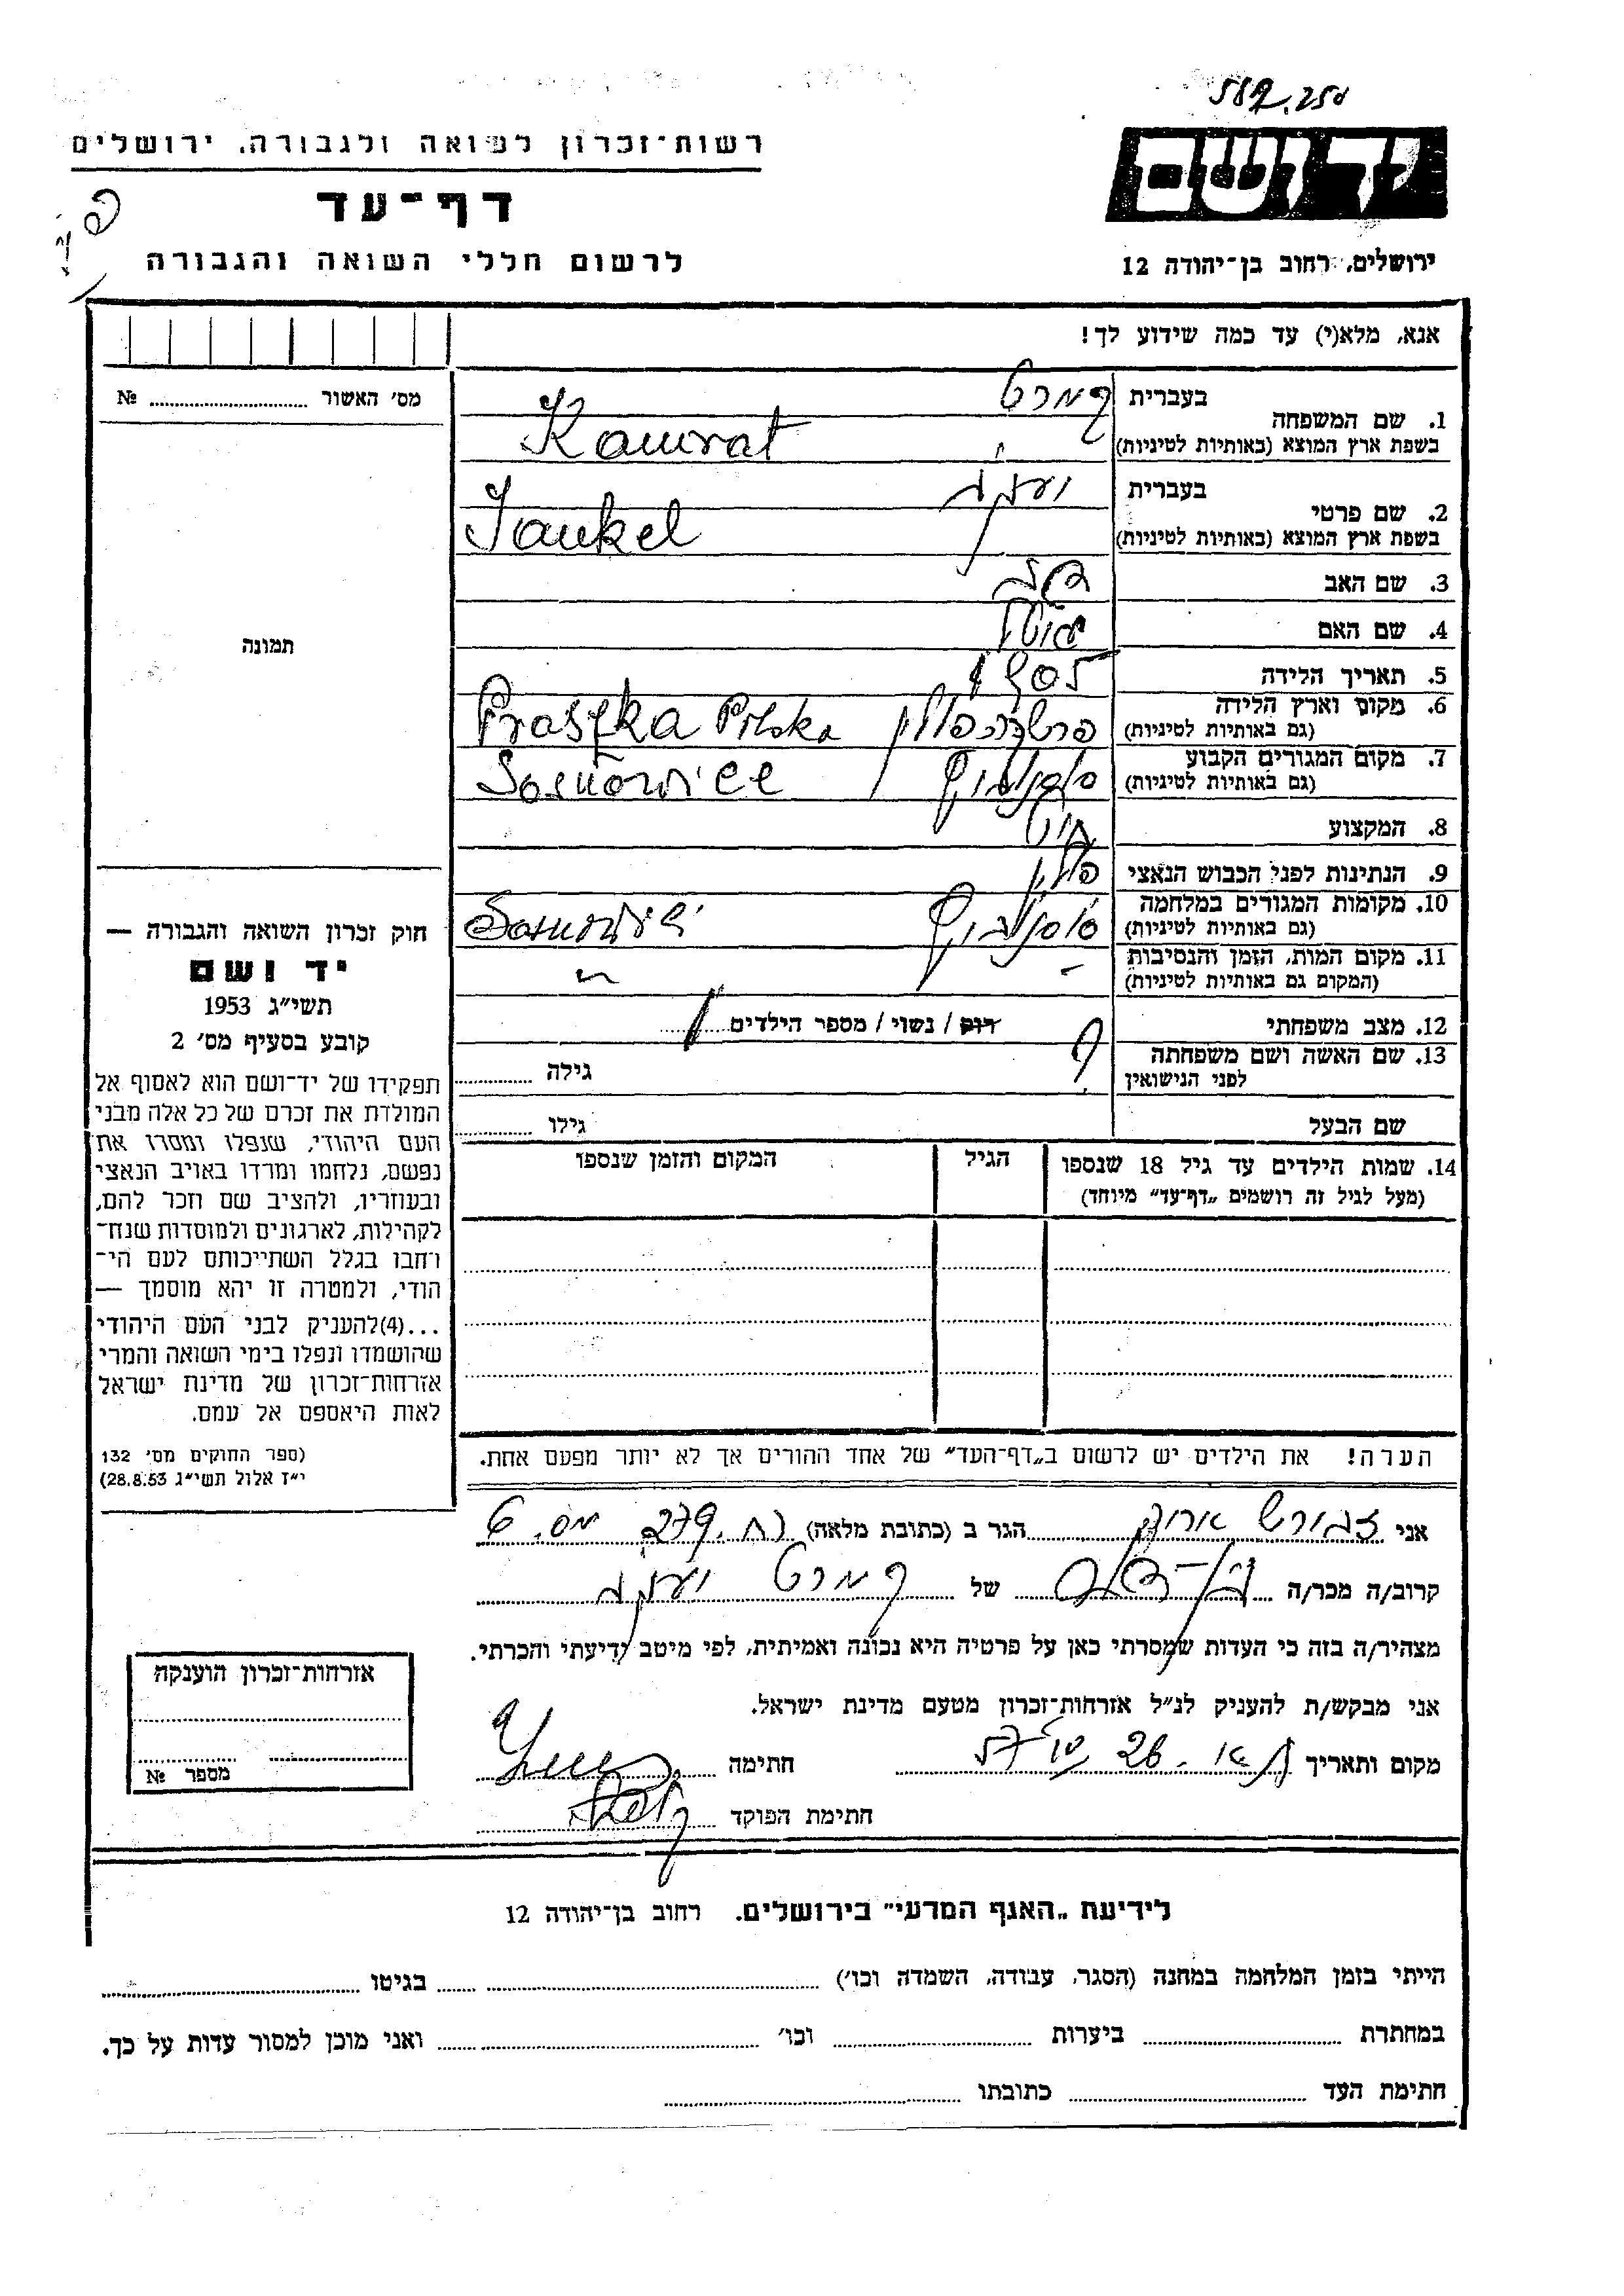 587.250
רשות־זכרון לשואה ולגבורה, ירושלים
יד ושם
דף־עד
לרשום חללי השואה והגבורה
ירושלים, רחוב בן־יהודה 12
אנא, מלא(י) עד כמה שידוע לך!
מס' האשור № 
1. שם המשפחה
בעברית קמרט
בשפת ארץ המוצא (באותיות לטיניות) Kamrat
2. שם פרטי
בעברית יעקב
בשפת ארץ המוצא (באותיות לטיניות) Jankel
3. שם האב
4. שם האם
5. תאריך הלידה 1905
6. מקום וארץ הלידה
(גם באותיות לטיניות) פולין Praszka Polska
7. מקום המגורים הקבוע
(גם באותיות לטיניות) סוסנוביץ Sosnowice
8. המקצוע
9. הנתינות לפני הכבוש הנאצי פולין
10. מקומות המגורים במלחמה
(גם באותיות לטיניות) סוסנוביץ
11. מקום המות, הזמן והנסיבות
(המקום גם באותיות לטיניות) -
12. מצב משפחתי רוק / נשוי / מספר הילדים 1
13. שם האשה ושם משפחתה
לפני הנישואין ? גילה
שם הבעל גילו
14. שמות הילדים עד גיל 18 שנספו
(מעל לגיל זה רושמים „דף־עד״ מיוחד)
הגיל
המקום והזמן שנספו
תמונה
חוק זכרון השואה והגבורה —
יד ושם
תשי״ג 1953
קובע בסעיף מס' 2
תפקידו של יד־ושם הוא לאסוף אל
המולדת את זכרם של כל אלה מבני
העם היהודי, שנפלו ומסרו את
נפשם, נלחמו ומרדו באויב הנאצי
ובעוזריו, ולהציב שם וזכר להם,
לקהילות, לארגונים ולמוסדות שנח־
רחבו בגלל השתייכותם לעם הי־
הודי, ולמטרה זו יהא מוסמך —
...(4)להעניק לבני העם היהודי
שהושמדו ונפלו בימי השואה והמרי
אזרחות־זכרון של מדינת ישראל
לאות היאספם אל עמם.
(ספר החוקים מס' 132
י״ז אלול תשי״ג 28.8.53)
הערה! את הילדים יש לרשום ב„דף־העד״ של אחד ההורים אך לא יותר מפעם אחת.
אני הגר ב (כתובת מלאה) 279 מס. 6
קרוב/ה מכר/ה של קמרט יעקב
מצהיר/ה בזה כי העדות שמסרתי כאן על פרטיה היא נכונה ואמיתית, לפי מיטב ידיעתי והכרתי.
אני מבקש/ת להעניק לנ״ל אזרחות־זכרון מטעם מדינת ישראל.
מקום ותאריך חתימה
חתימת הפוקד
אזרחות־זכרון הוענקה
מספר №
לידיעת „האגף המדעי״ בירושלים. רחוב בן־יהודה 12
הייתי בזמן המלחמה במחנה (הסגר, עבודה, השמדה וכו') בגיטו
במחתרת ביערות וכו' ואני מוכן למסור עדות על כך.
חתימת העד כתובתו